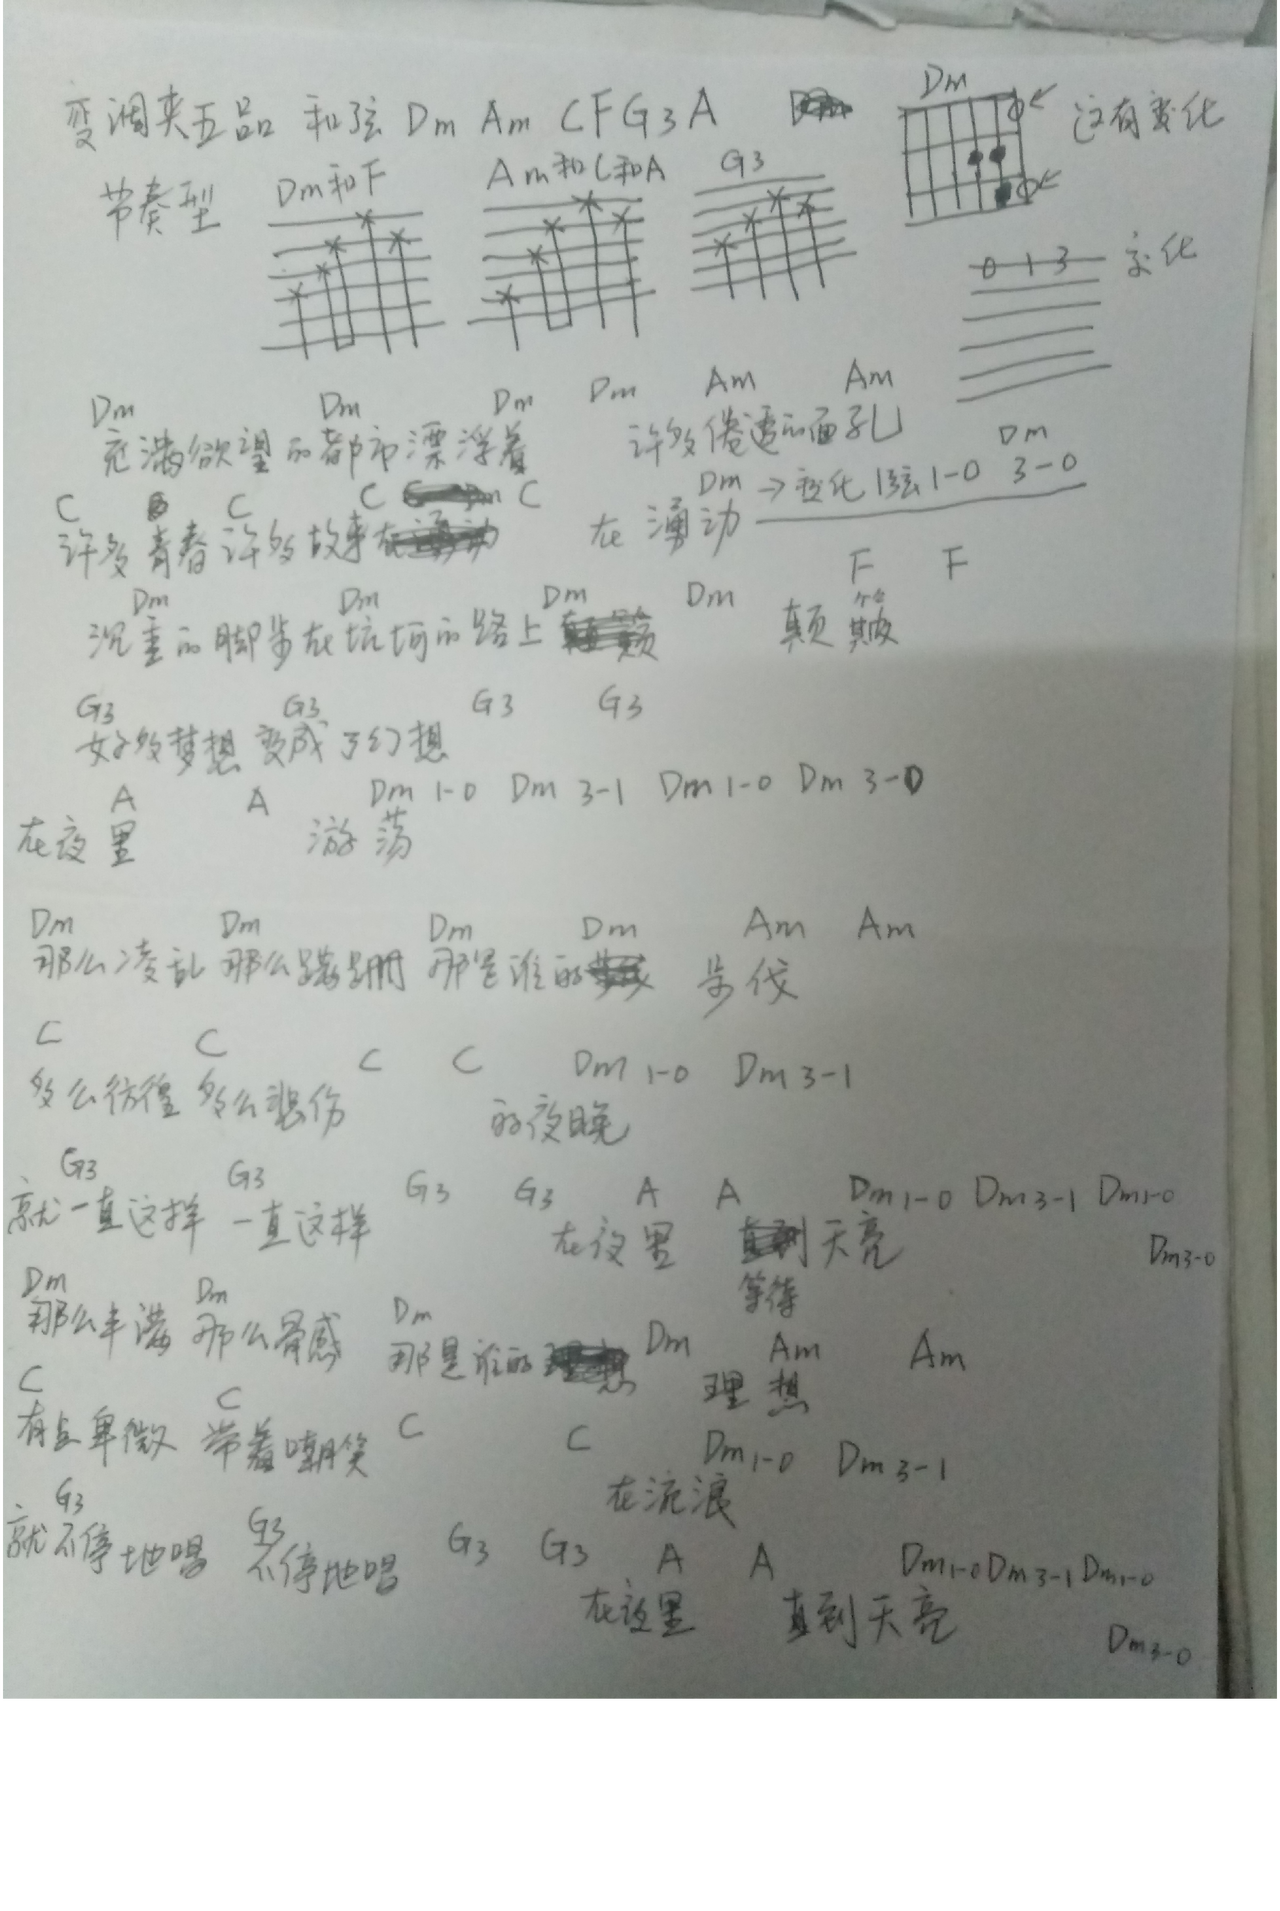 变调夹五品 和弦 Dm Am C F G3 A
Dm
这有变化
节奏型
Dm和F
Am和C和A
G3
0 1 3 变化
Dm Dm Dm Dm Am Am
充满欲望的都市漂浮着 许多倦透的面孔
C C C C Dm → 变化 1弦 1-0 Dm 3-0
许多青春许多故事 在涌动
Dm Dm Dm Dm F F
沉重的脚步在坑坷的路上 颠簸
G3 G3 G3 G3
好多梦想 变成了幻想
A A Dm 1-0 Dm 3-1 Dm 1-0 Dm 3-0
在夜里 游荡
Dm Dm Dm Dm Am Am
那么凌乱 那么蹒跚 那是谁的 步伐
C C C C Dm 1-0 Dm 3-1
多么彷徨 多么悲伤 的夜晚
G3 G3 G3 G3 A A Dm 1-0 Dm 3-1 Dm 1-0
就一直这样 一直这样 在夜里 天亮
Dm 3-0
等待
Dm Dm Dm Dm Am Am
那么丰满 那么骨感 那是谁的 理想
C C C C Dm 1-0 Dm 3-1
有点卑微 带着嘲笑 在流浪
G3 G3 G3 G3 A A Dm 1-0 Dm 3-1 Dm 1-0
就不停地唱 不停地唱 在夜里 直到天亮
Dm 3-0